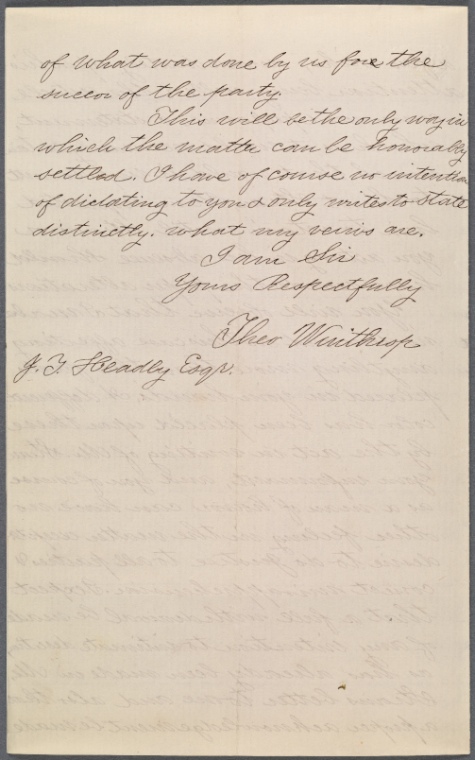 of what was done by us for the
succor of the party.
This will be the only way in
which the matter can be honorably
settled. I have of course no intention
of dictating to you & only write to state
distinctly. what my views are.
I am Sir
Yours Respectfully
Theo Winthrop
J. T. Headly Esqr.